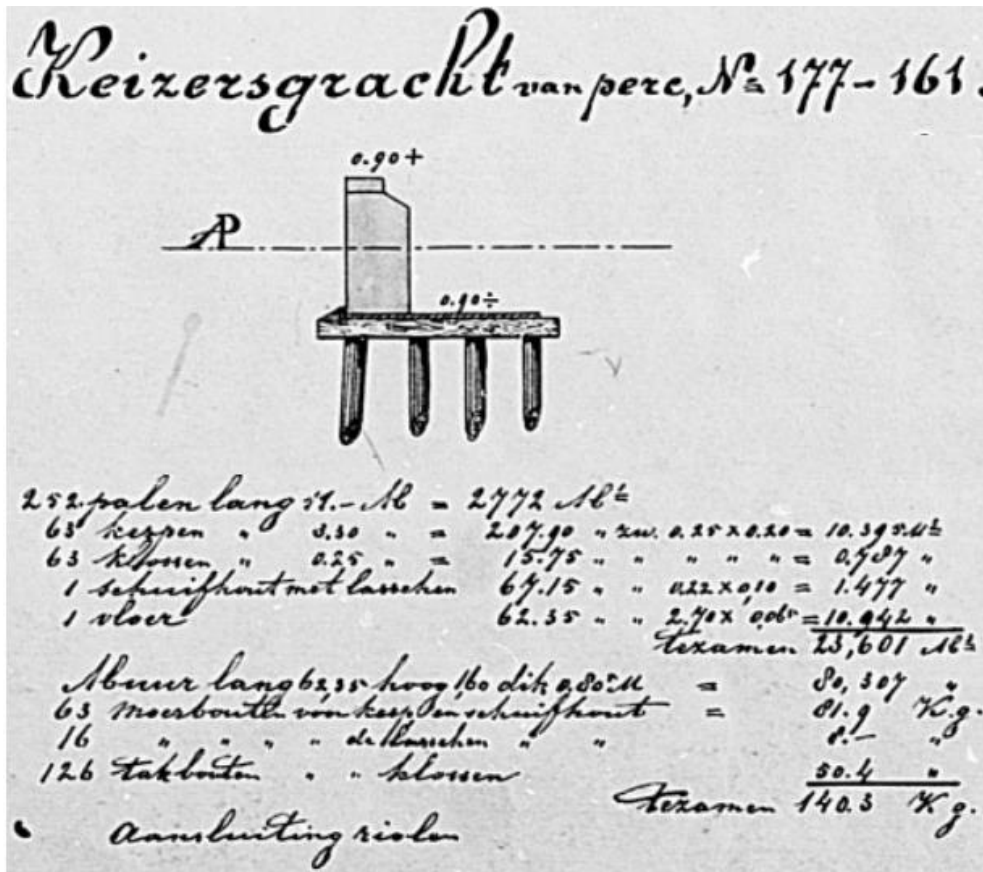 Keizersgracht van perc, № 177-161.
0.90+
AP
0.90÷
252 palen lang 11.- M = 2772 M¹
63 kespen " 3.30 " = 207.90 " zw. 0.25 x 0.20 = 10.395 M³
63 klossen " 0.25 " = 15.75 " " " " " = 0.787 "
1 schuifhout met lasschen 67.15 " " 0.22 x 0,10 = 1.477 "
1 vloer 62.35 " " 2.70 x 0,065 = 10.942 "
tezamen 23,601 M³
Muur lang 62,35 hoog 1,60 dik 0,805 M = 80,307 "
63 moerbouten voor kesp en schuifhout = 81.9 K.g.
16 " " " " de lasschen " " 8.- "
126 takbouten " " klossen 50.4 "
tezamen 140.3 K g.
Aansluiting riolen